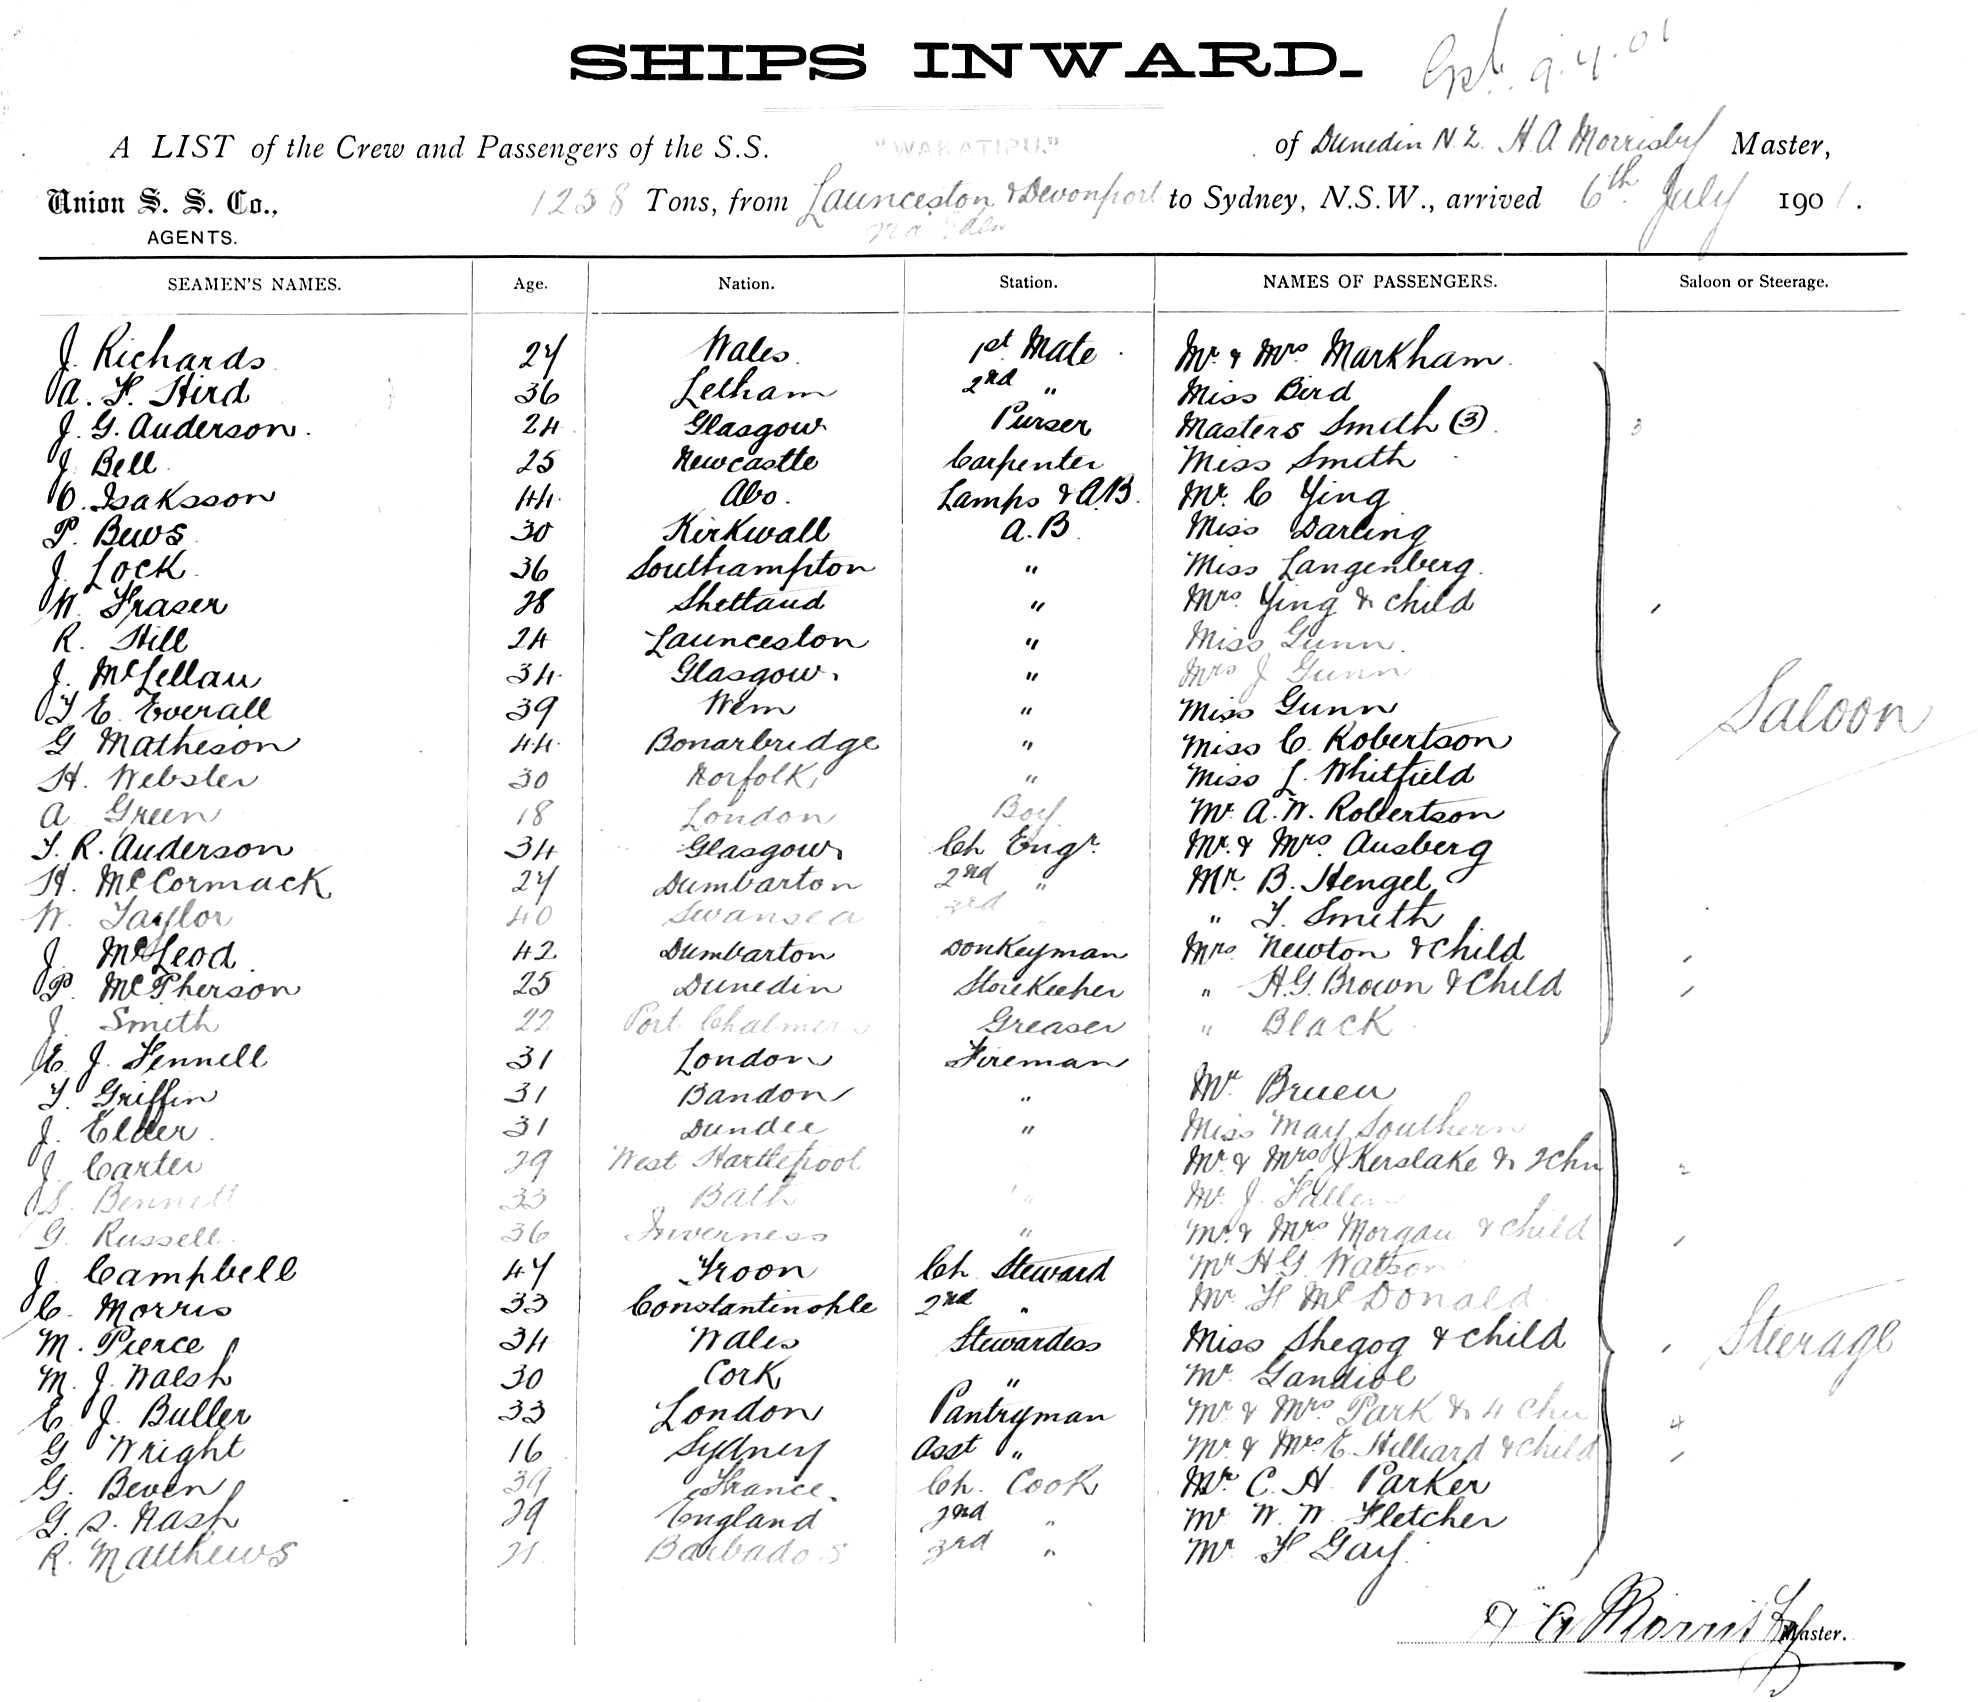 SHIPS INWARD.
9.7.01
A LIST of the Crew and Passengers of the S.S. "WAKATIPU." of Dunedin N.Z. H A Morrisby Master,
Union S. S. Co., 1258 Tons, from Launceston & Devonport to Sydney, N.S.W., arrived 6th July 1901.
via Eden
AGENTS.
SEAMEN'S NAMES. Age. Nation. Station. NAMES OF PASSENGERS. Saloon or Steerage.
J. Richards 27 Wales. 1st Mate Mr. & Mrs Markham.
A. F. Hird 36 Lelham 2nd " Miss Bird
J. G. Anderson. 24 Glasgow Purser Masters Smith (3). 3
J. Bell 25 Newcastle Carpenter Miss Smith
O. Isaksson 44 Abo. Lamps & A.B. Mr. C Ying
P. Bews 30 Kirkwall A.B. Miss Darling
J. Lock 36 Southampton " Miss Langenberg.
W. Fraser 28 Shetland " Mrs. Ying & child
R. Hill 24 Launceston " Miss Gunn.
J. McLellan 34 Glasgow. " Mrs J Gunn
T E. Everall 39 Wem " Miss Gunn Saloon
G Matheson 44 Bonarbridge " Miss C. Robertson
H. Webster 30 Norfolk " Miss L. Whitfield
A Green 18 London Boy Mr. A. W. Robertson
T. R. Anderson 34 Glasgow Ch Engr. Mr. & Mrs. Ausberg
H. McCormack 27 Dumbarton 2nd " Mr. B. Hengel
W. Taylor 40 Swansea 3rd " T. Smith
J. McLeod 42 Dumbarton Donkeyman Mrs Newton & Child
P. McPherson 25 Dunedin Storekeeper " H.G. Brown & Child
J. Smith 22 Port Chalmers Greaser " Black
E. J. Fennell 31 London Fireman
T. Griffin 31 Bandon " Mr Bruen
J. Elder 31 Dundee " Miss May Southern
J Carter 29 West Hartlepool Mr. & Mrs J Kerslake & 2 Chn 2
S. Bennett 33 Bath " Mr. J.
G. Russell 36 Inverness " Mr. & Mrs Morgan & child
J Campbell 47 Troon Ch. Steward Mr H G Watson
C. Morris 33 Constantinople 2nd " Mr. F McDonald
M. Pierce 34 Wales Stewardess Miss Shegog & child Steerage
M. J. Walsh 30 Cork " Mr. Gandiol
E. J. Buller 33 London Pantryman Mr & Mrs. Park & 4 Chn 4
G Wright 16 Sydney Asst " Mr. & Mrs E. Hilliard & child
G. Beven 39 France. Ch. Cook Mr. C. H. Parker
G. S. Nash 29 England 2nd " Mr W. W. Fletcher
R. Matthews 21 Barbados 3rd " Mr. F Gay.
H A Morrisby Master.